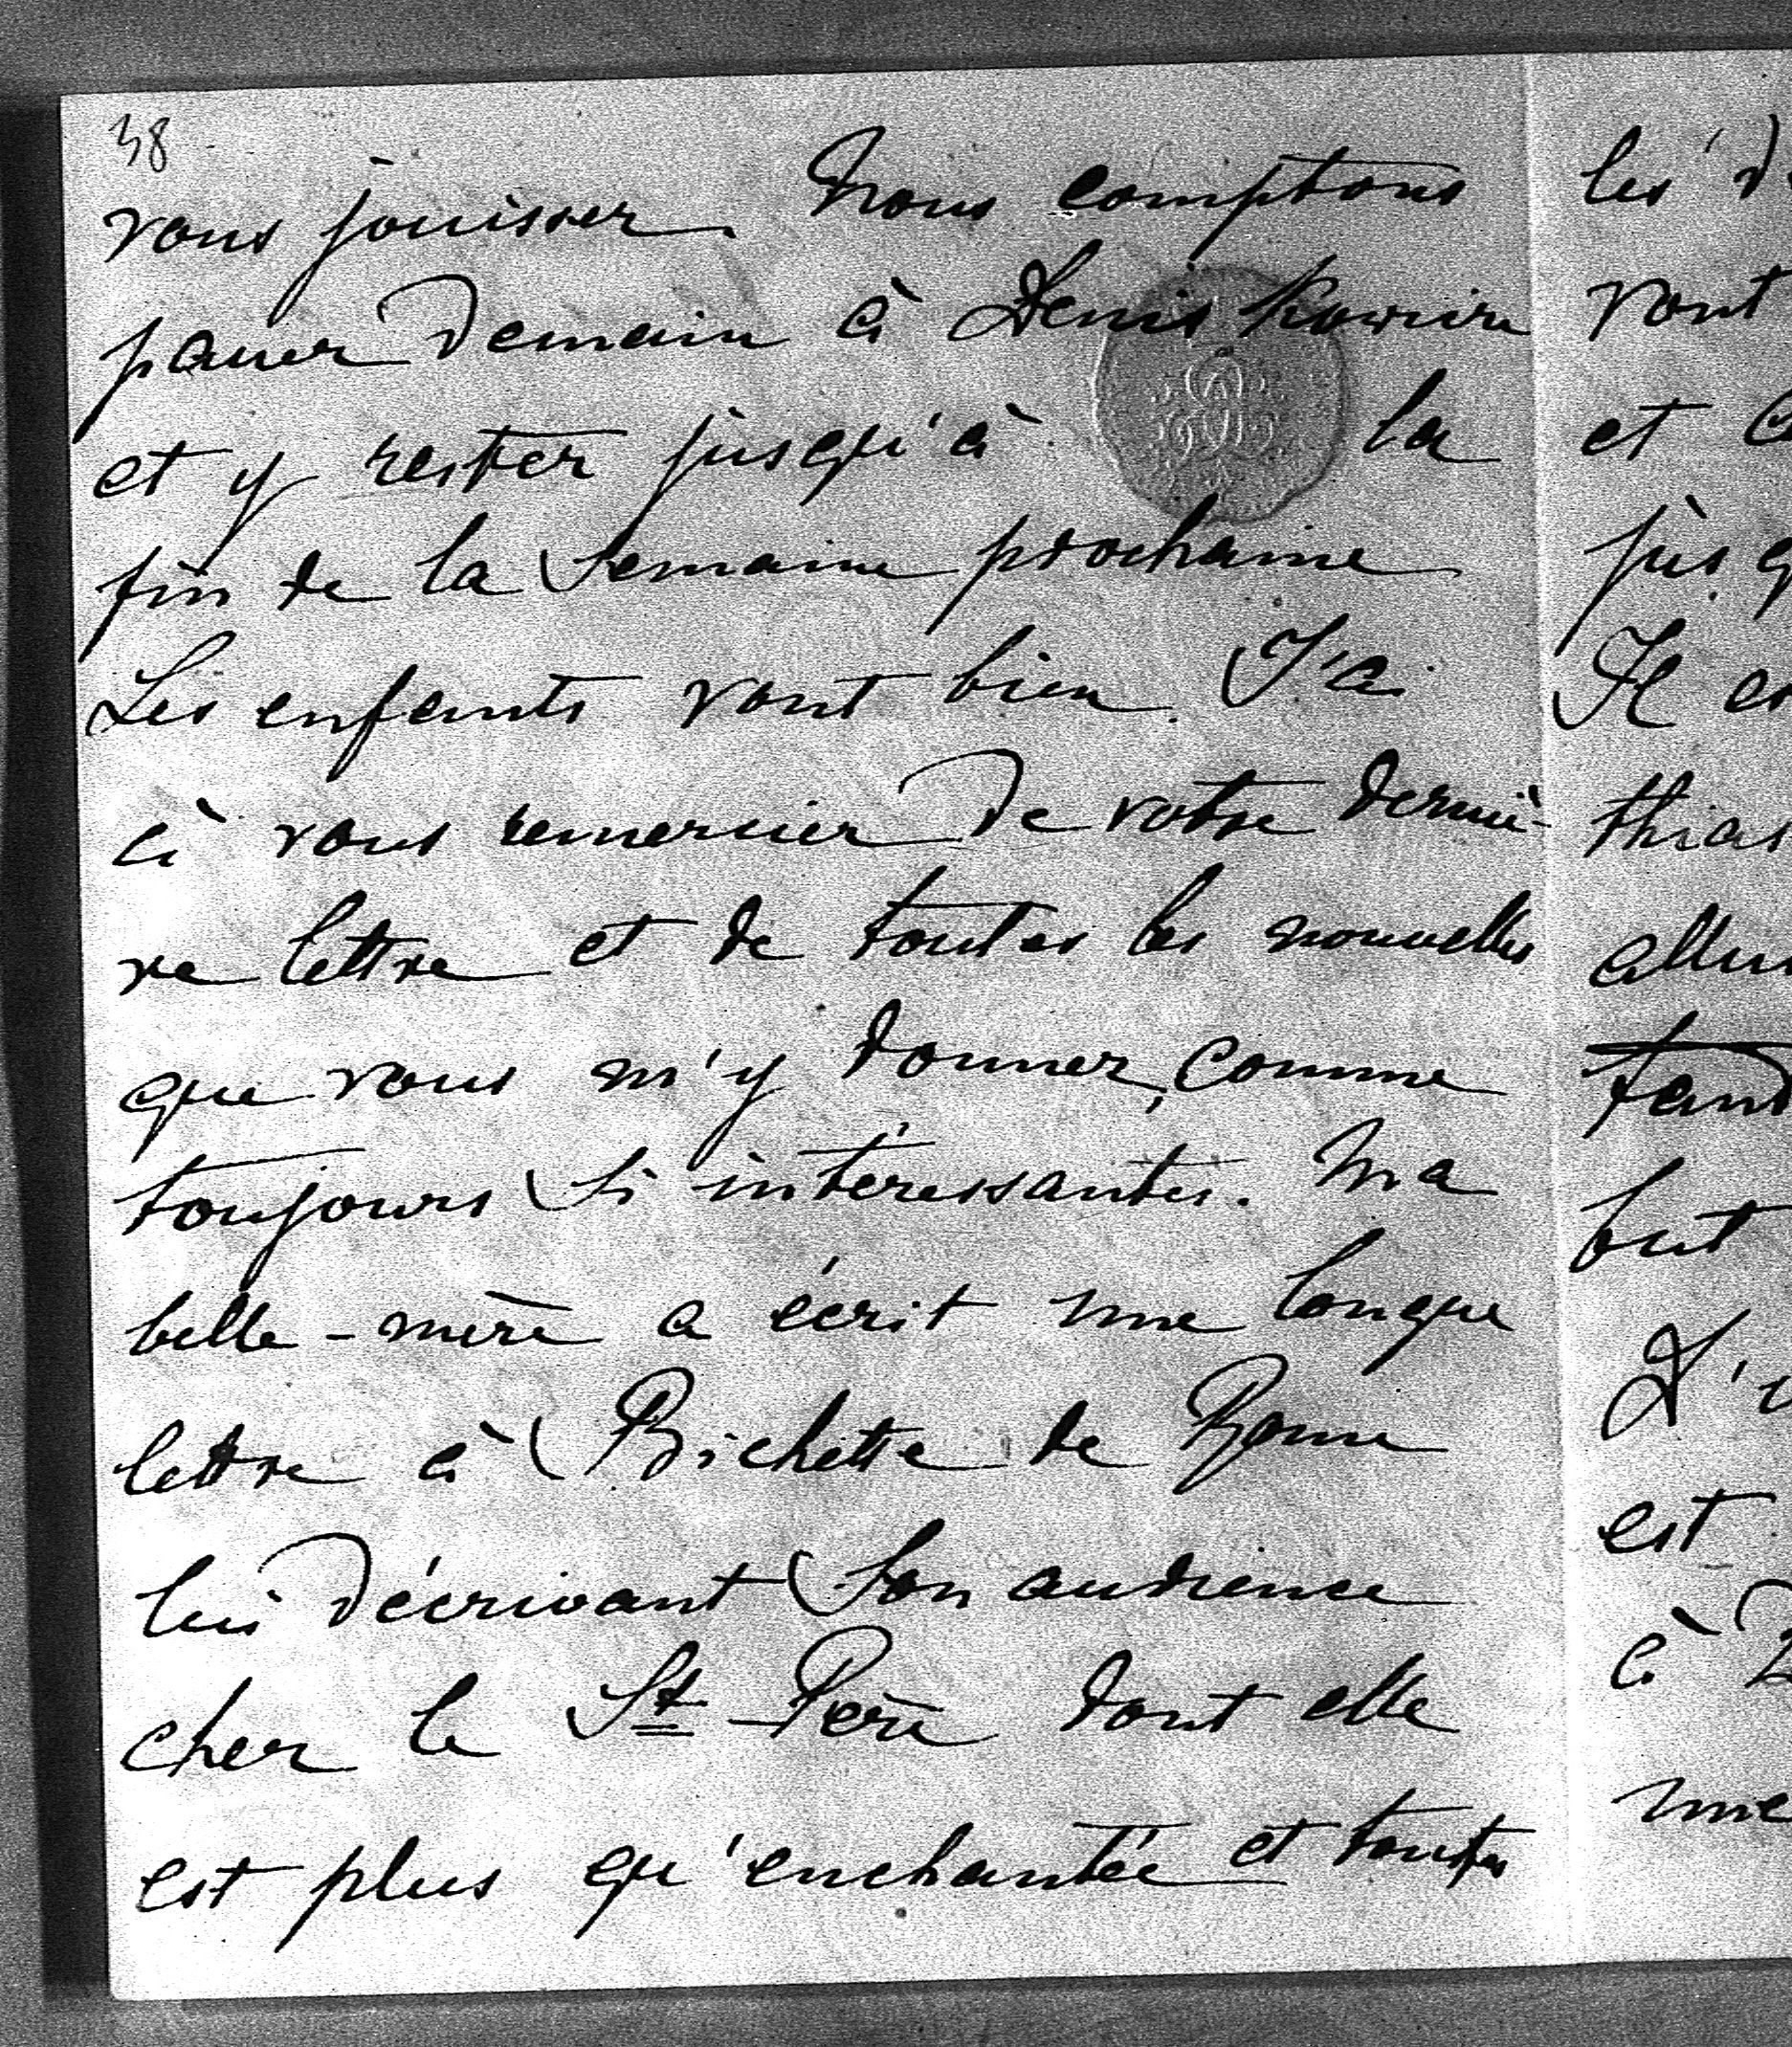 38
vous jouissez. Nous comptons
passer demain à Deniskowicze
et y rester jusqu'à la
fin de la semaine prochaine
Les enfants vont bien. J'ai
à vous remercier de votre derniè-
re lettre et de toutes les nouvelles
que vous m'y donnez, comme
toujours si intéressantes. Ma
belle-mère a écrit une longue
lettre à Bichette de Rome
lui décrivant son audience
chez le St-Père dont elle
est plus qu'enchantée et toutes
les
vont
et
jus
Il
thias
but
est
à
une